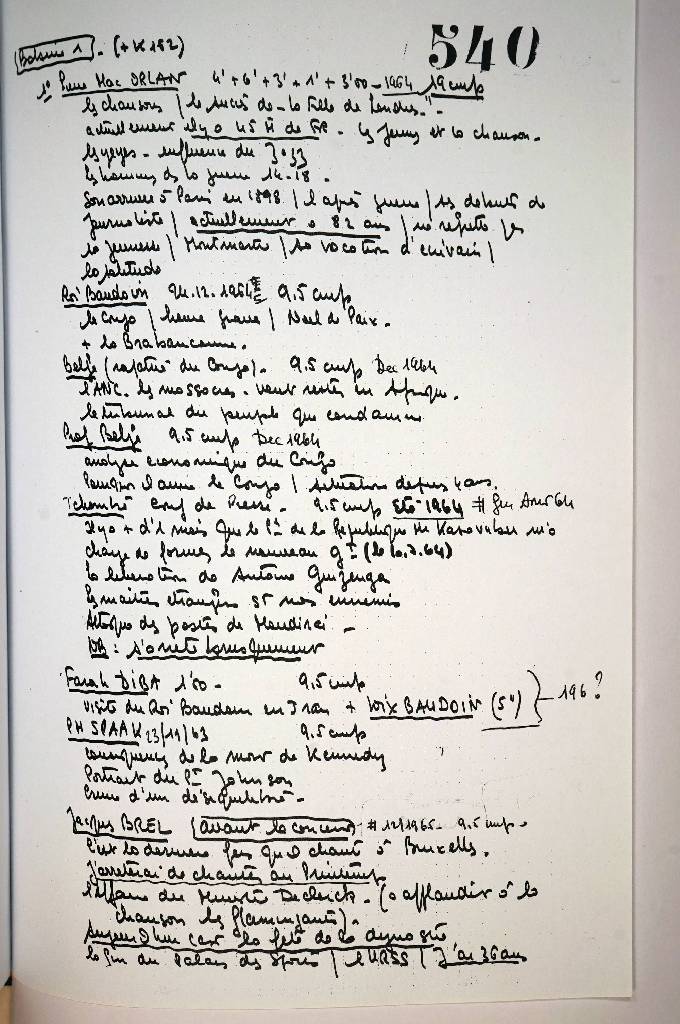 540
Bobine 1. (+ K152)
1° Pierre Mac ORLAN 4' + 6' + 3' + 1' + 3'50 - 1964 19 cm/s
les chansons / le succès de "La fille de Londres".
actuellement il y a 45 de - les jeunes et la chanson.
les yeyes - influence du
les hommes de la guerre 14-18.
Son arrivée à Paris en 1898 / l'après guerre / ses débuts de
journaliste / actuellement a 82 ans / ne regrette pas
la jeunesse / Montmartre / sa vocation d'écrivain /
la solitude
Roi Baudouin 24.12.1964 9.5 cm/s
le Congo / heure grave / Noël de Paix.
+ la Brabançonne.
Belge (rapatrié du Congo). 9.5 cm/s Dec 1964
l'ANC. les massacres. veut rester en Afrique.
le tribunal du peuple qui condamne
Prof. Belge 9.5 cm/s Dec 1964
analyse économique du Congo
le Congo / situation depuis 4 ans.
Tchombé Conf de Presse. 9.5 cm/s Eté 1964 #
Il y a + d'1 mois que le Pt de la République Mr Kasavubu m'a
chargé de former le nouveau gt (le 10.7.64)
la libération de Antoine Gizenga
les maîtres étrangers st nos ennemis
Attaque des postes de
NB : s'arrête brusquement
Farah DIBA 1'50 - 9,5 cm/s
visite du Roi Baudouin en Iran + VOIX BAUDOIN (5") } 196 ?
PH SPAAK 23/11/63 9.5 cm/s
conséquences de la mort de Kennedy
Portrait du Pt Johnson
Crime d'un déséquilibré -
Jacques BREL (avant le concert) # 12/1965 - 9.5 cm/s -
C'est la dernière fois qu'il chante à Bruxelles.
J'arrêterai de chanter au Printemps
l'affaire du Ministre Declerck. (a applaudir à la
chanson les flamingants).
Aujourd'hui c'est la fête de la dynastie
la fin du Palais des Sports / l'URSS / J'ai 36 ans